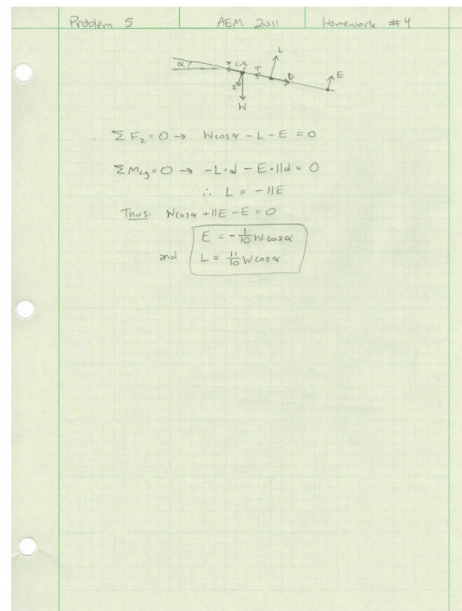 Problem 5 AEM 2011 Homework #4
α x c.g. T L D E
z
W
ΣF_z = 0 → W cos α - L - E = 0
ΣM_cg = 0 → -L·d - E·11d = 0
∴ L = -11E
Thus: W cos α + 11E - E = 0
E = -1/10 W cos α
and L = 11/10 W cos α